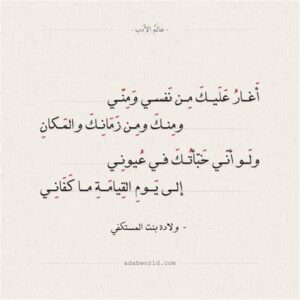 - عالَمُ الأدَب -
أَغَارُ عَلَيـكَ مِـن نَفسـي وَمِنّـي
ومِنكَ ومِـن زَمَانِـكَ والمَـكانِ
ولَـو أنّـي خَبّأتُـكَ فـي عُيونـي
إلـى يَـومِ القِيامَـةِ مـا كَفَانـي
- ولادة بنت المستكفي
adabworld.com